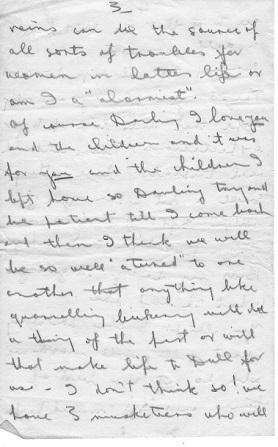 3
veins can be the source of
all sorts of troubles for
women in latter life or
am I a "alarmist".
Of course Darling I love you
and the children and it was
for you and the children I
left home so Darling try and
be patient till I come back
and then I think we will
be so well "atuned" to one
another that anything like
quarrelling bickering will be
a thing of the past or will
that make life to Dull for
us - I don't think so! we
have 3 musketeers who will